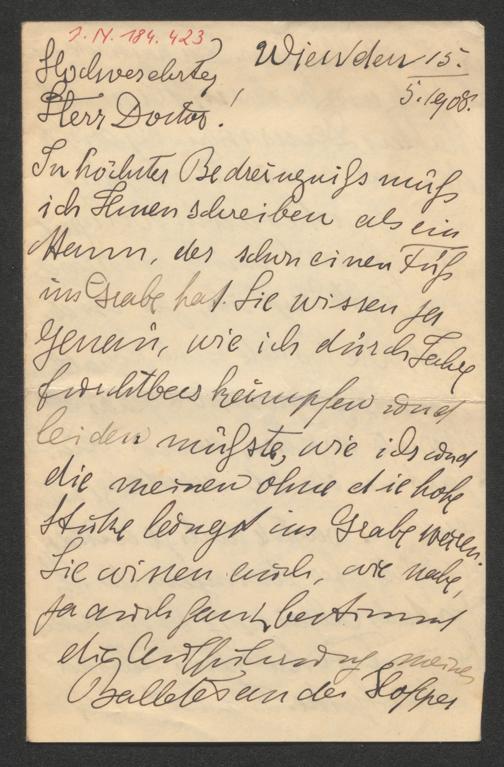 I. N. 184.423
Wien den 15.
5. 1908.
Hochverehrter
Herr Doctor!
In höchster Bedrängniß muß
ich Ihnen schreiben als ein
Mann, der schon einen Fuß
im Grabe hat. Sie wissen ja
genau, wie ich durch Jahre
furchtbar kämpfen und
leiden mußte, wie ich und
die meinen ohne die hohe
Stütze längst im Grabe wären.
Sie wissen auch, wie nahe,
ja auch ganz bestimmt
die Aufführung meines
Balletes an der Hofoper